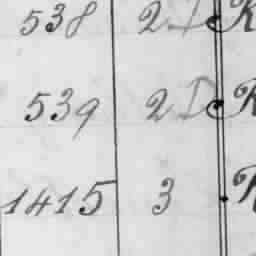 538 2 I R
539 2 D R
1415 3 R